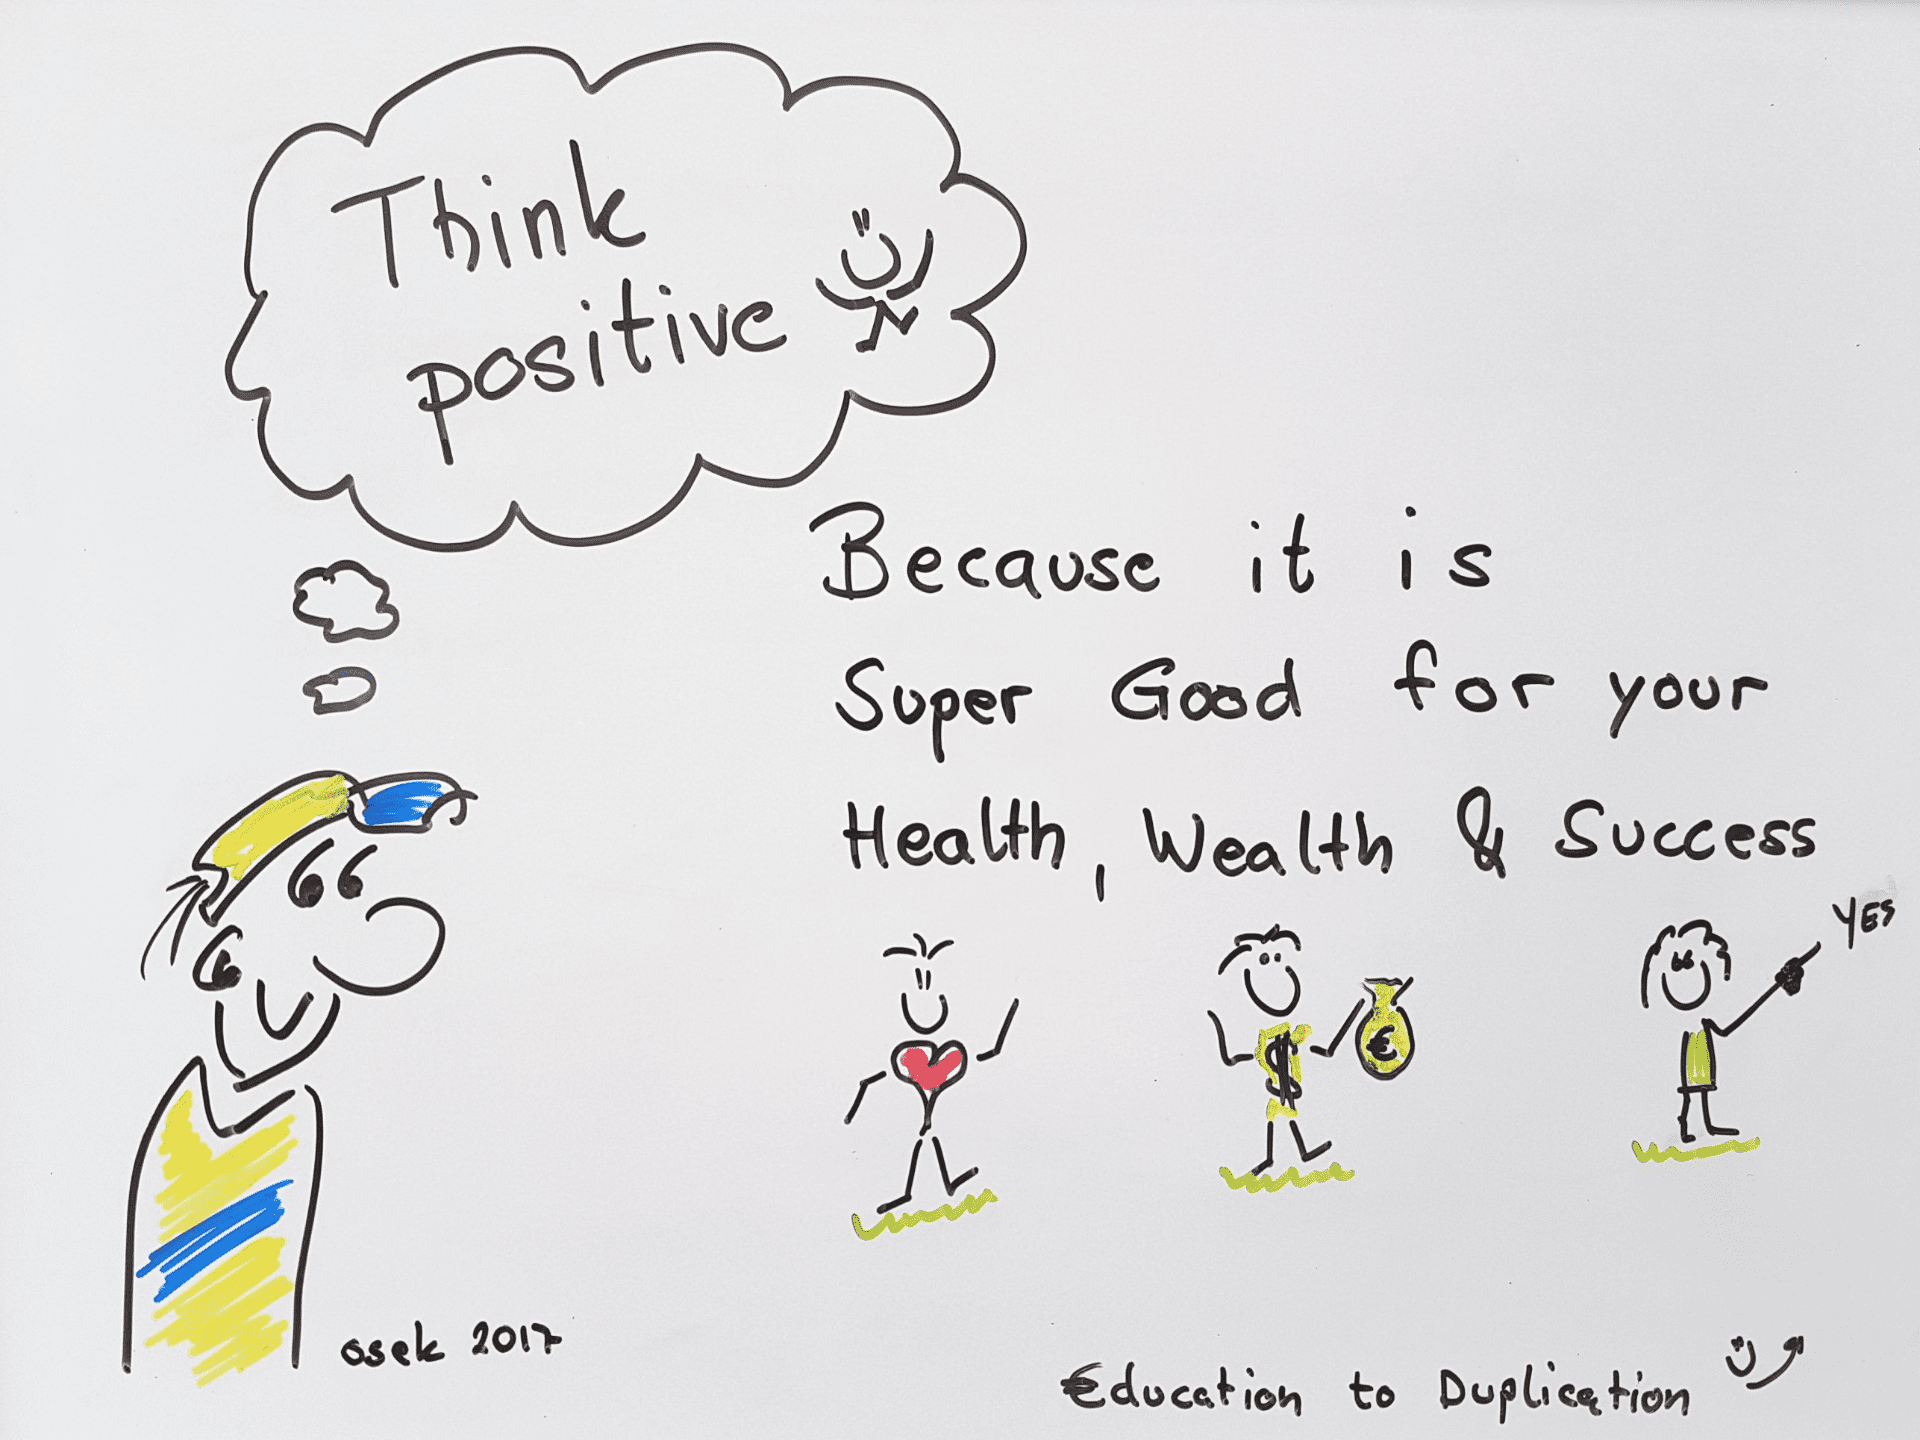 Think
positive
Because it is
Super Good for your
Health, Wealth & Success
YES
$
€
osek 2017
€ducation to Duplication